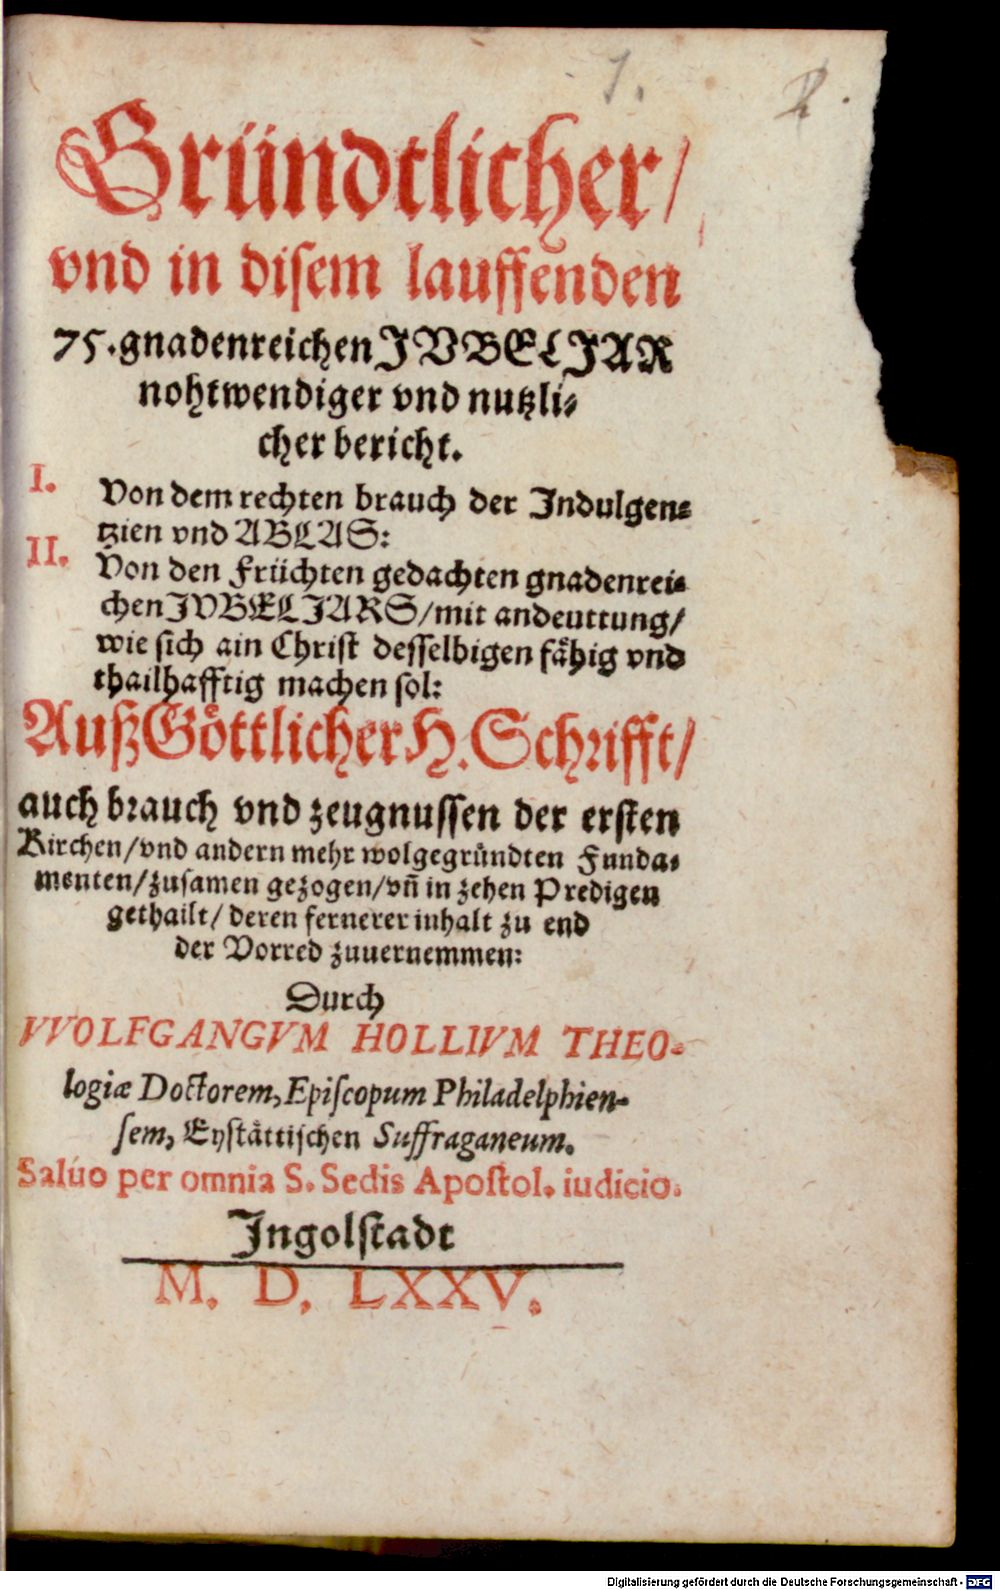 1.
2.
Gründtlicher/
vnd in disem lauffenden
75. gnadenreichen JVBELJAR
nohtwendiger vnd nutzli-
cher bericht.
I. Von dem rechten brauch der Indulgen-
tzien vnd ABLAS:
II. Von den Früchten gedachten gnadenrei-
chen JVBELJARS/mit andeuttung/
wie sich ain Christ desselbigen fåhig vnd
thailhafftig machen sol:
Auß Göttlicher H. Schrifft/
auch brauch vnd zeugnussen der ersten
Kirchen/vnd andern mehr wolgegründten Funda-
menten/zusamen gezogen/vñ in zehen Predigen
gethailt/deren fernerer inhalt zu end
der Vorred zuuernemmen:
Durch
VVOLFGANGVM HOLLIVM THEO-
logiæ Doctorem, Episcopum Philadelphien-
sem, Eystättischen Suffraganeum.
Saluo per omnia S. Sedis Apostol. iudicio.
Ingolstadt
M. D. LXXV.
Digitalisierung gefördert durch die Deutsche Forschungsgemeinschaft - DFG